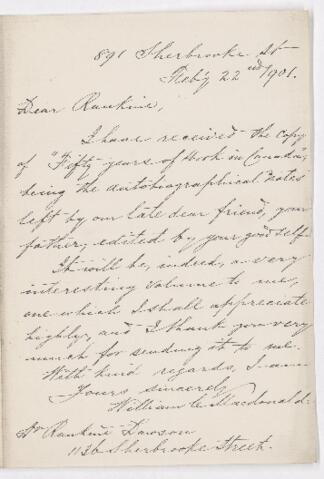 891 Sherbrooke St
Feb'y 22nd 1901.
Dear Rankine,
I have received the copy
of "Fifty years of Work in Canada",
being the autobiographical notes
left by our late dear friend, your
father, edited by your good self.
It will be, indeed, a very
interesting volume to me,
one which I shall appreciate
highly, and I thank you very
much for sending it to me.
With kind regards, I am
Yours sincerely
William C. Macdonald.
Dr Rankine Dawson
Sherbrooke Street.